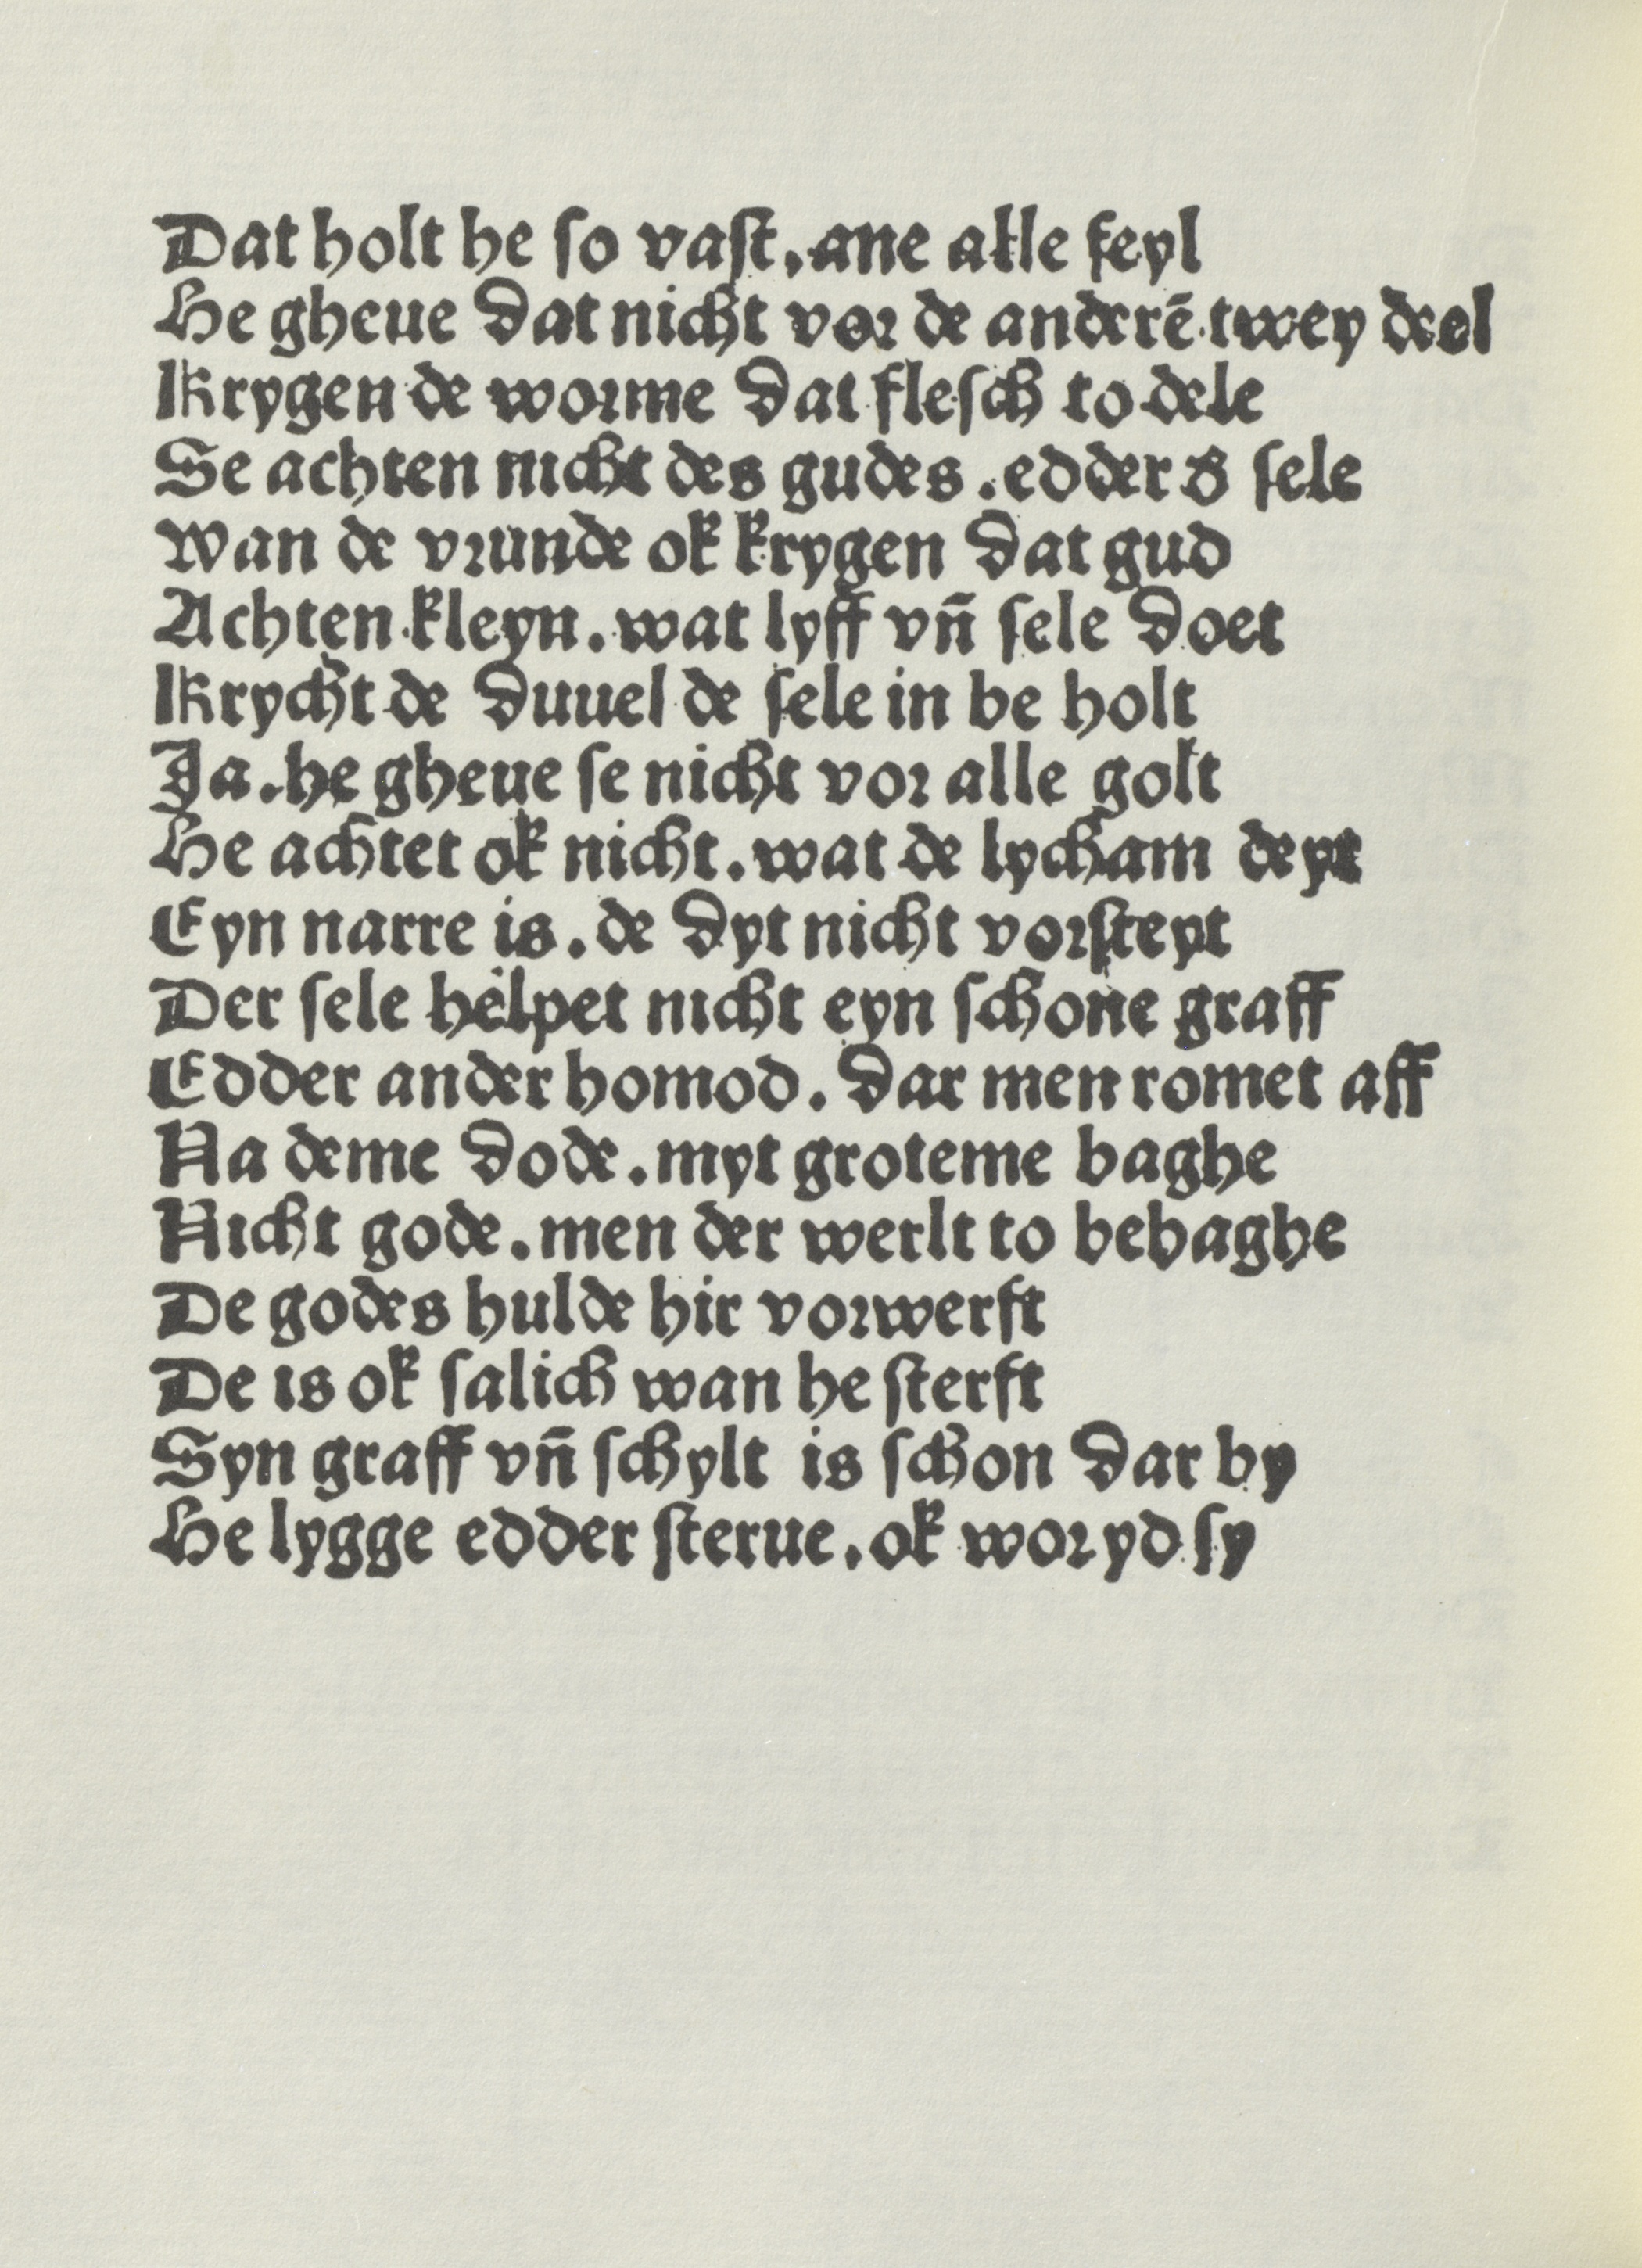 Dat holt he ſo vaſt. ane alle feyl
He gheue dat nicht vor de anderē twey deel
Krygen de worme dat fleſch to dele
Se achten nicht des gudes. edder d̕ ſele
Wan de vrunde ok krygen dat gud
Achten kleyn. wat lyff vn̄ ſele doet
Krycht de duuel de ſele in be holt
Ja. he gheue ſe nicht vor alle golt
He achtet ok nicht. wat de lycham deyt
Eyn narre is. de dyt nicht vorſteyt
Der ſele helpet nicht eyn ſchone graff
Edder ander homod. dar men romet aff
Na deme dode. myt groteme baghe
Nicht gode. men der werlt to behaghe
De godes hulde hir vorwerft
De is ok ſalich wan he ſterft
Syn graff vn̄ ſchylt is ſchon dar by
He lygge edder ſterue. ok wor yd ſy